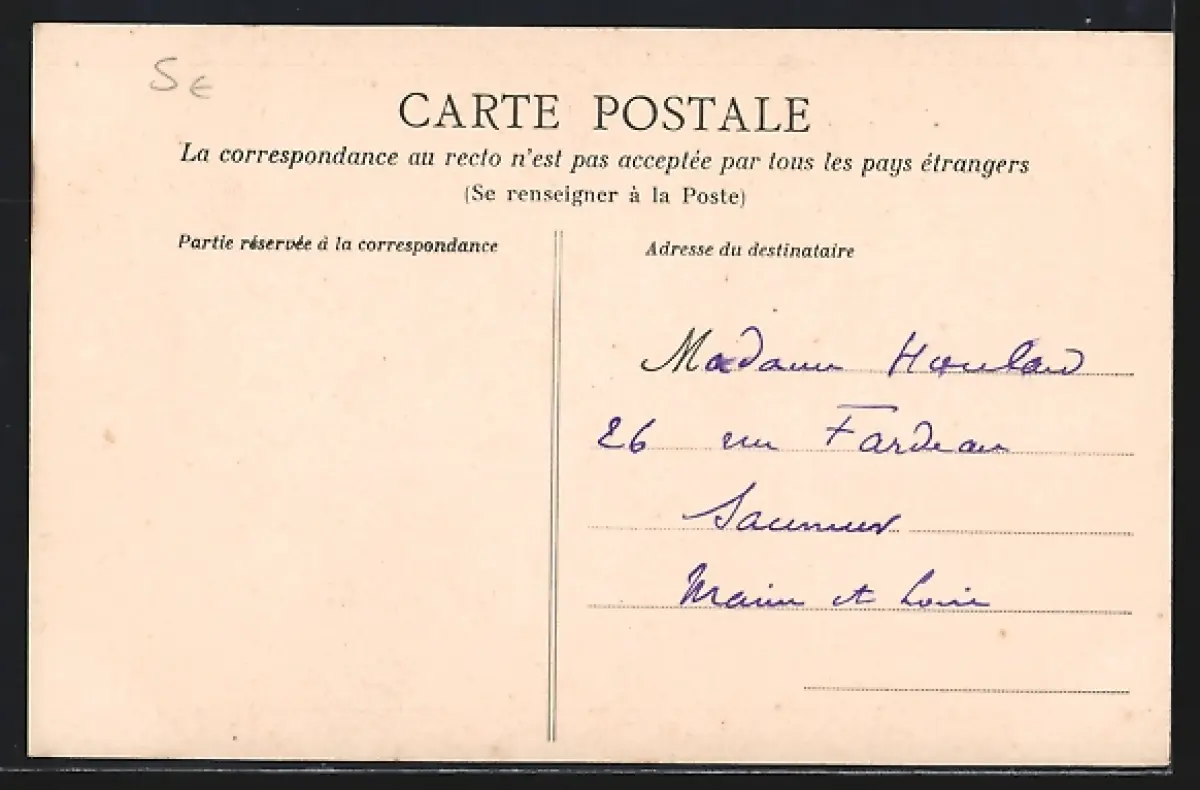 5 €
CARTE POSTALE
La correspondance au recto n'est pas acceptée par tous les pays étrangers
(Se renseigner à la Poste)
Partie réservée à la correspondance
Adresse du destinataire
Madame
26 rue Fardeau
Saumur
Maine et Loire